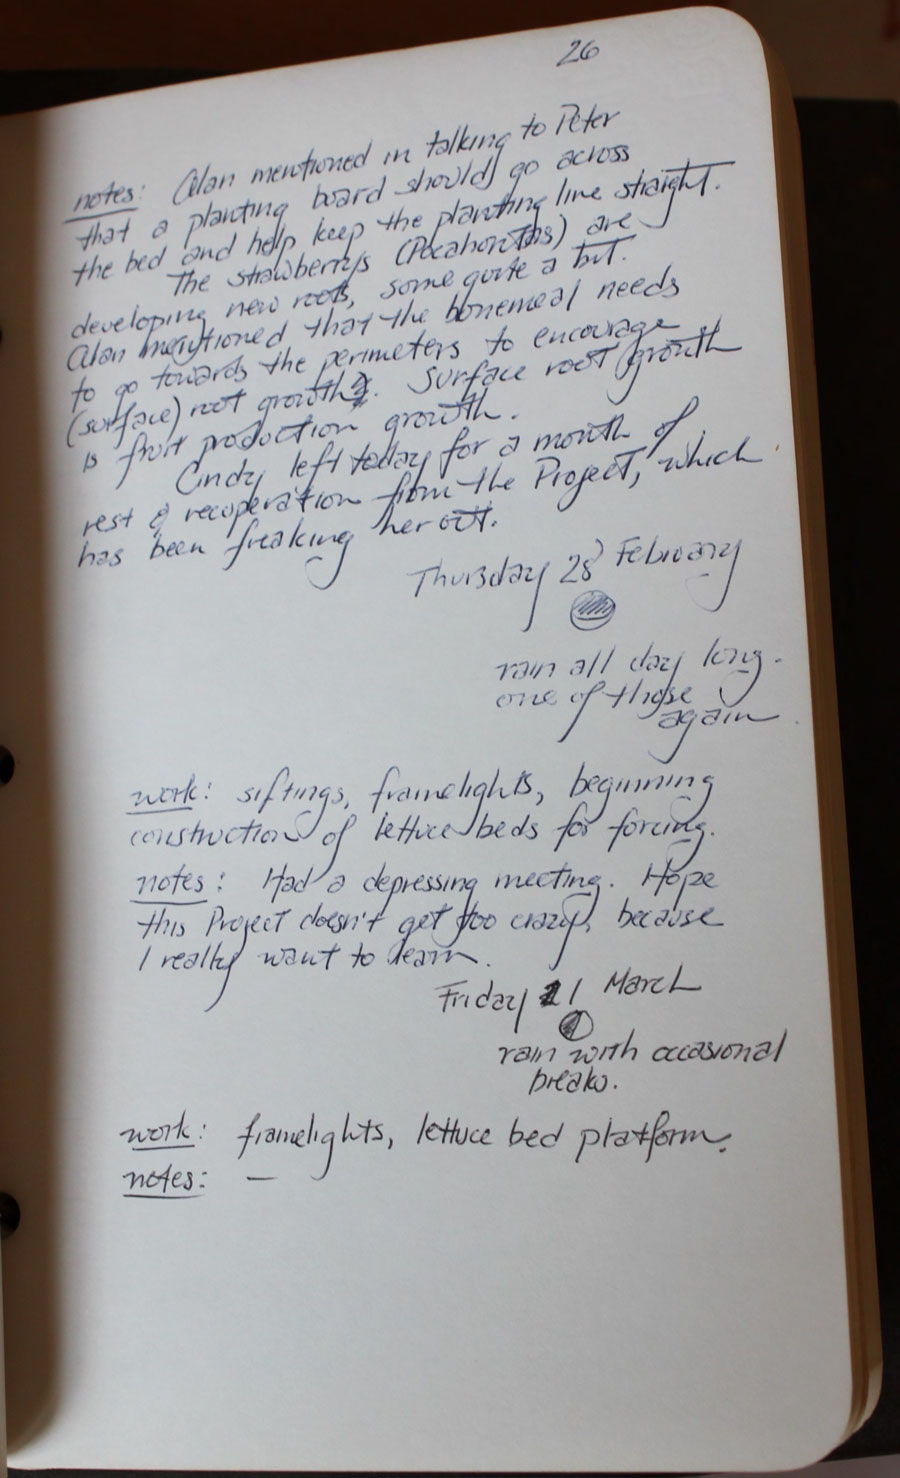 26
notes: Alan mentioned in talking to Peter
that a planting board should go across
the bed and help keep the planting line straight.
The strawberrys (Pocahontas) are
developing new roots, some quite a bit.
Alan mentioned that the bonemeal needs
to go towards the perimeters to encourage
(surface) root growth. Surface root growth
is fruit production growth.
Cindy left today for a month of
rest & recoperation from the Project, which
has been freaking her out.
Thursday 28 February
rain all day long.
one of those
again
work: siftings, framelights, beginning
construction of lettuce beds for forcing.
notes: Had a depressing meeting. Hope
this Project doesn't get too crazy, because
I really want to learn.
Friday 1 March
rain with occasional
breaks.
work: framelights, lettuce bed platform.
notes: —